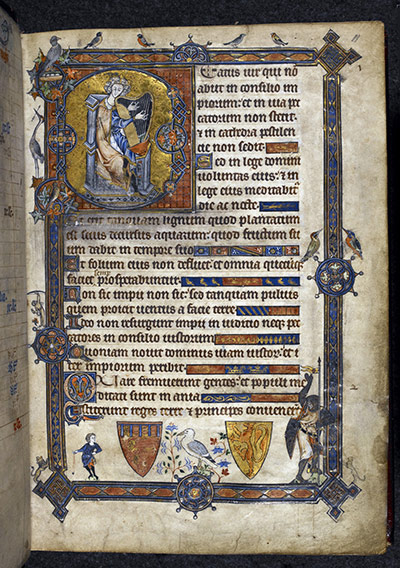 Beatus vir qui nō
abiit in consilio im
piorum: et in via pec
catorum non stetit:
& in cathedra pestilen
cie non sedit.
Sed in lege domini
voluntas eius: & in
lege eius meditabitᵉ
die ac nocte.
Et erit tanquam lignum quod plantatum
est secus decursus aquarum: quod fructum su
um dabit in tempore suo
Et folium eius non defluet: et omnia quecūqꝫ
faciet semp prosperabuntur
Non sic impii non sic: sed tanquam pulvis
quem proicit ventus a facie terre
Ideo non resurgunt impii in iuditio neqꝫ pec
catores in consilio iustorum
Quoniam novit dominus viam iustorꝫ: et i
ter impiorum peribit
Quare fremuerunt gentes: et populi me
ditati sunt inania
Astiterunt reges terre & principes convenerᵗ